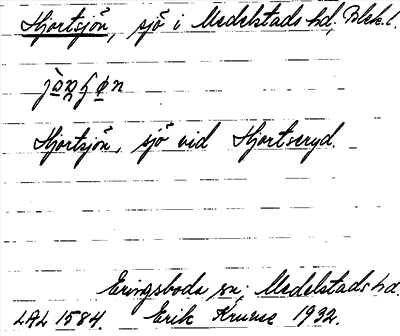 Hjortsjön, sjö i Medelstads hd, Blek.l.
Hjortsjön, sjö vid Hjortseryd.
Eringsboda sn; Medelstads hd.
LAL 1584. Erik Kruuse 1932.